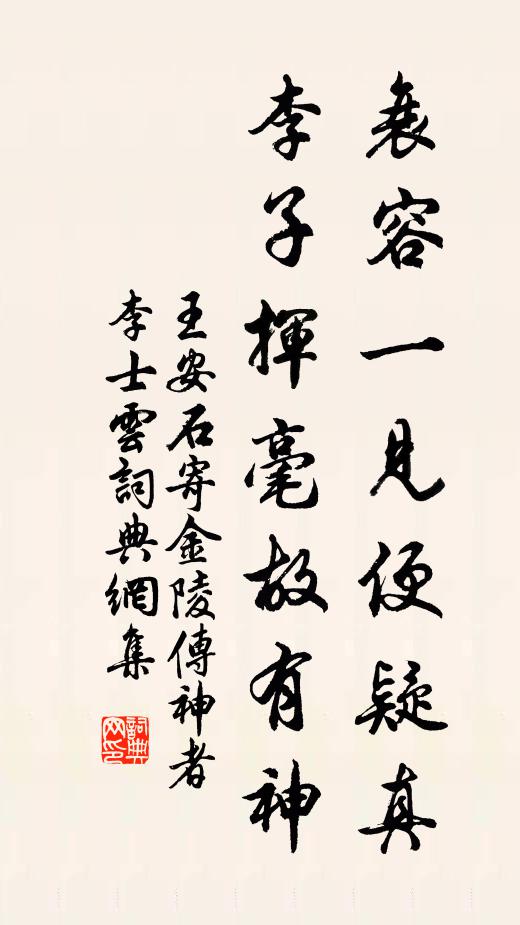 衰容一見便疑真
李子揮毫故有神
王安石寄金陵傳神者
李士雲詞典網集
詞典网印